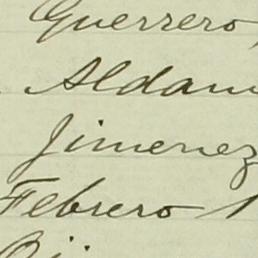 Guerrero,
Aldam
Jimenez
Febrero 1